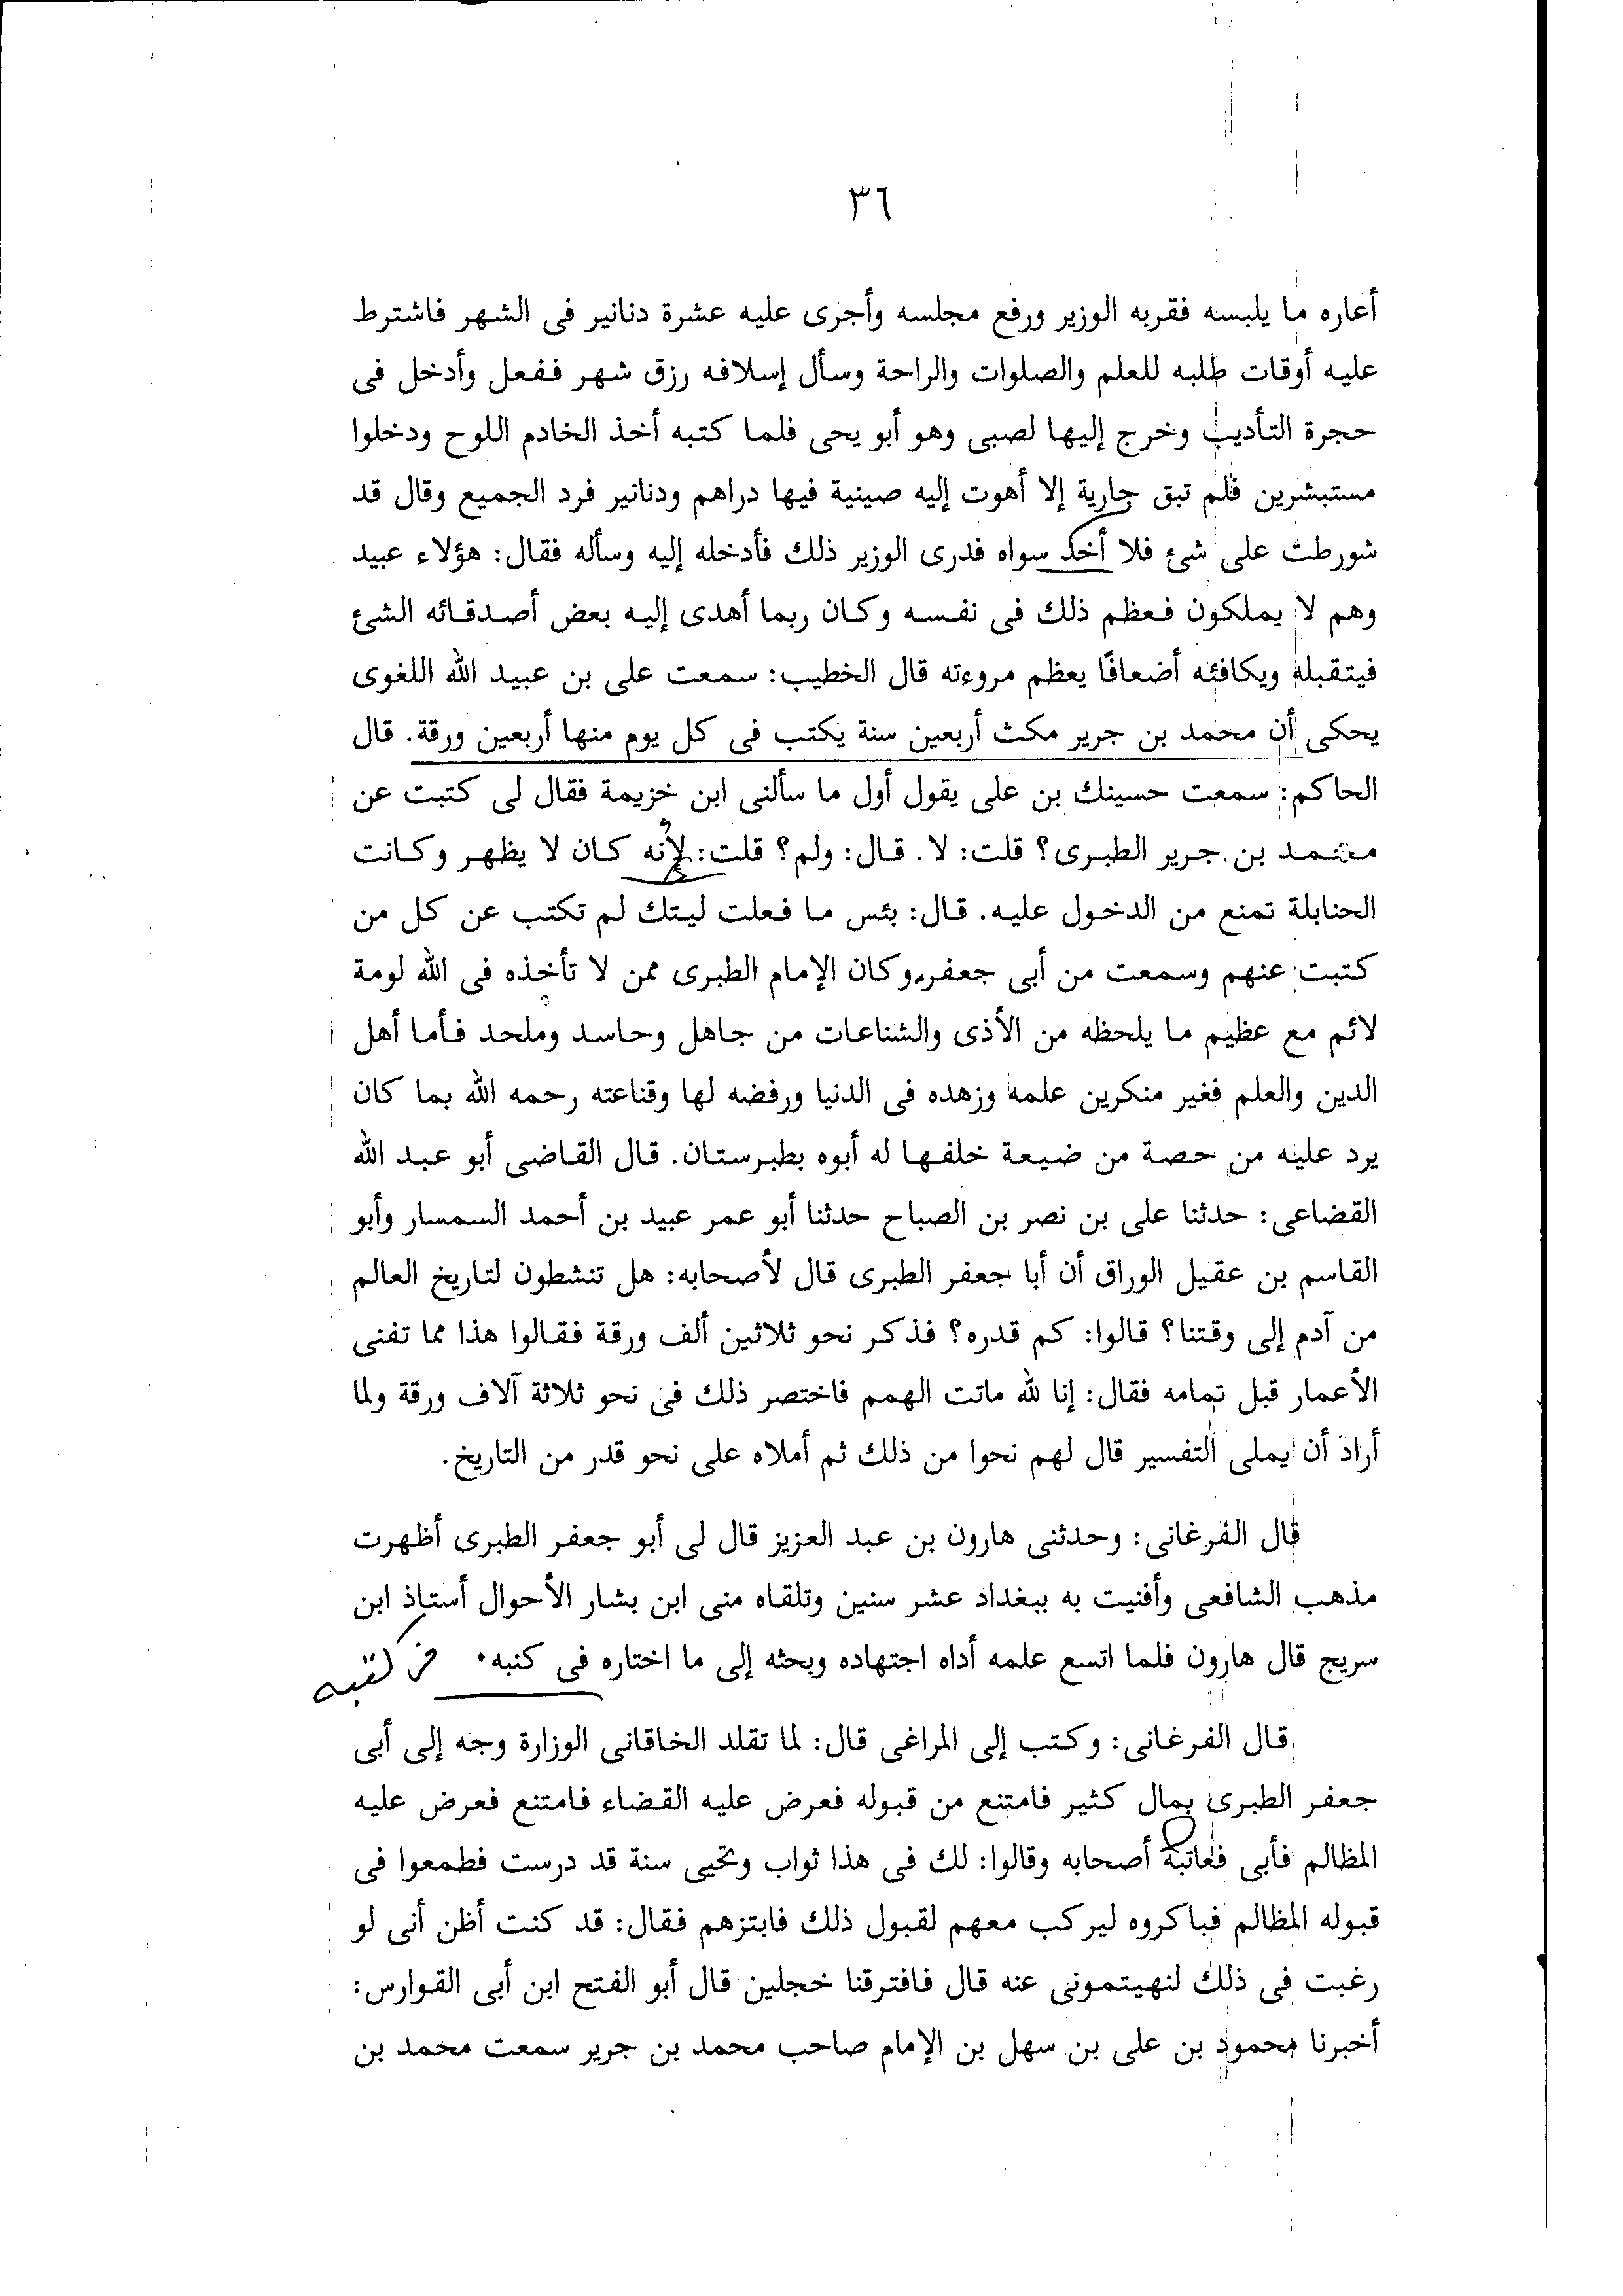 ٣٦
أعاره ما يلبسه فقربه الوزير ورفع مجلسه وأجرى عليه عشرة دنانير فى الشهر فاشترط
عليه أوقات طلبه للعلم والصلوات والراحة وسأل إسلافه رزق شهر ففعل وأدخل فى
حجرة التأديب وخرج إليها لصبى وهو أبو يحى فلما كتبه أخذ الخادم اللوح ودخلوا
مستبشرين فلم تبق جارية إلا أهوت إليه صينية فيها دراهم ودنانير فرد الجميع وقال قد
شورطت على شئ فلا أخذ سواه فدرى الوزير ذلك فأدخله إليه وسأله فقال: هؤلاء عبيد
وهم لا يملكون فعظم ذلك فى نفسه وكان ربما أهدى إليه بعض أصدقائه الشئ
فيتقبله ويكافئه أضعافًا يعظم مروءته قال الخطيب: سمعت على بن عبيد الله اللغوى
يحكى أن محمد بن جرير مكث أربعين سنة يكتب فى كل يوم منها أربعين ورقة. قال
الحاكم: سمعت حسينك بن على يقول أول ما سألنى ابن خزيمة فقال لى كتبت عن
محمد بن جرير الطبرى؟ قلت: لا. قال: ولم؟ قلت: لأنه كان لا يظهر وكانت
الحنابلة تمنع من الدخول عليه. قال: بئس ما فعلت ليتك لم تكتب عن كل من
كتبت عنهم وسمعت من أبى جعفر. وكان الإمام الطبرى ممن لا تأخذه فى الله لومة
لائم مع عظيم ما يلحظه من الأذى والشناعات من جاهل وحاسد وملحد فأما أهل
الدين والعلم فغير منكرين علمه وزهده فى الدنيا ورفضه لها وقناعته رحمه الله بما كان
يرد عليه من حصة من ضيعة خلفها له أبوه بطبرستان. قال القاضى أبو عبد الله
القضاعى: حدثنا على بن نصر بن الصباح حدثنا أبو عمر عبيد بن أحمد السمسار وأبو
القاسم بن عقيل الوراق أن أبا جعفر الطبرى قال لأصحابه: هل تنشطون لتاريخ العالم
من آدم إلى وقتنا؟ قالوا: كم قدره؟ فذكر نحو ثلاثين ألف ورقة فقالوا هذا مما تفنى
الأعمار قبل تمامه فقال: إنا لله ماتت الهمم فاختصر ذلك فى نحو ثلاثة آلاف ورقة ولما
أراد أن يملى التفسير قال لهم نحوا من ذلك ثم أملاه على نحو قدر من التاريخ.
قال الفرغانى: وحدثنى هارون بن عبد العزيز قال لى أبو جعفر الطبرى أظهرت
مذهب الشافعى وأفنيت به ببغداد عشر سنين وتلقاه منى ابن بشار الأحوال أستاذ ابن
سريج قال هارون فلما اتسع علمه أداه اجتهاده وبحثه إلى ما اختاره فى كنبه. فى كتبه
قال الفرغانى: وكتب إلى المراغى قال: لما تقلد الخاقانى الوزارة وجه إلى أبى
جعفر الطبرى بمال كثير فامتنع من قبوله فعرض عليه القضاء فامتنع فعرض عليه
المظالم فأبى فعاتبه أصحابه وقالوا: لك فى هذا ثواب وتحيى سنة قد درست فطمعوا فى
قبوله المظالم فباكروه ليركب معهم لقبول ذلك فابتزهم فقال: قد كنت أظن أنى لو
رغبت فى ذلك لنهيتمونى عنه قال فافترقنا خجلين قال أبو الفتح ابن أبى القوارس:
أخبرنا محمود بن على بن سهل بن الإمام صاحب محمد بن جرير سمعت محمد بن